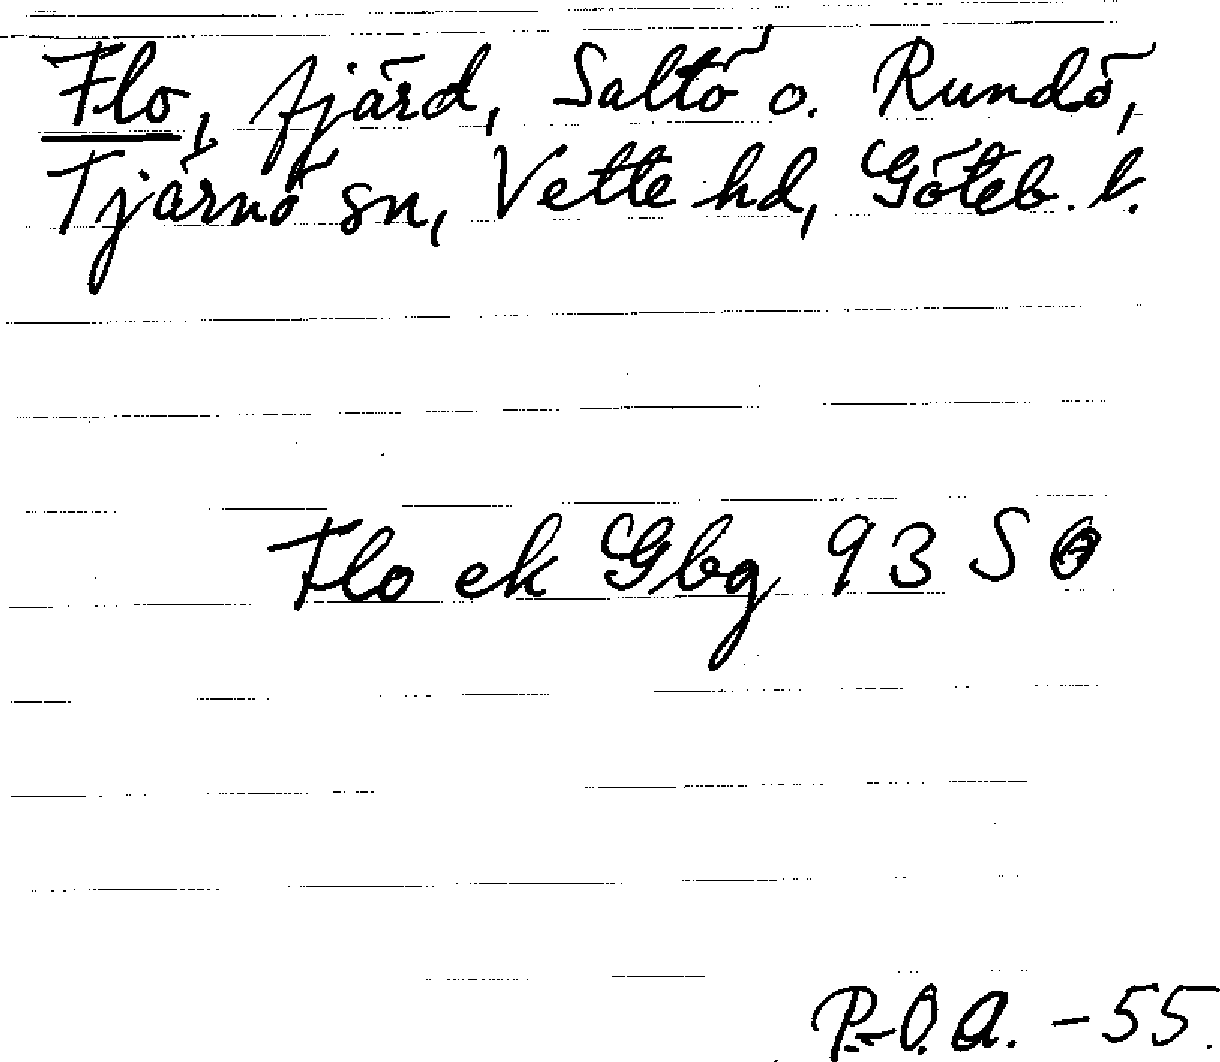 Flo, fjärd, Saltö o. Rundö,
Tjärnö sn, Vette hd, Göteb. l.
Flo ek Gbg 93 SO
P.-O. A. -55.